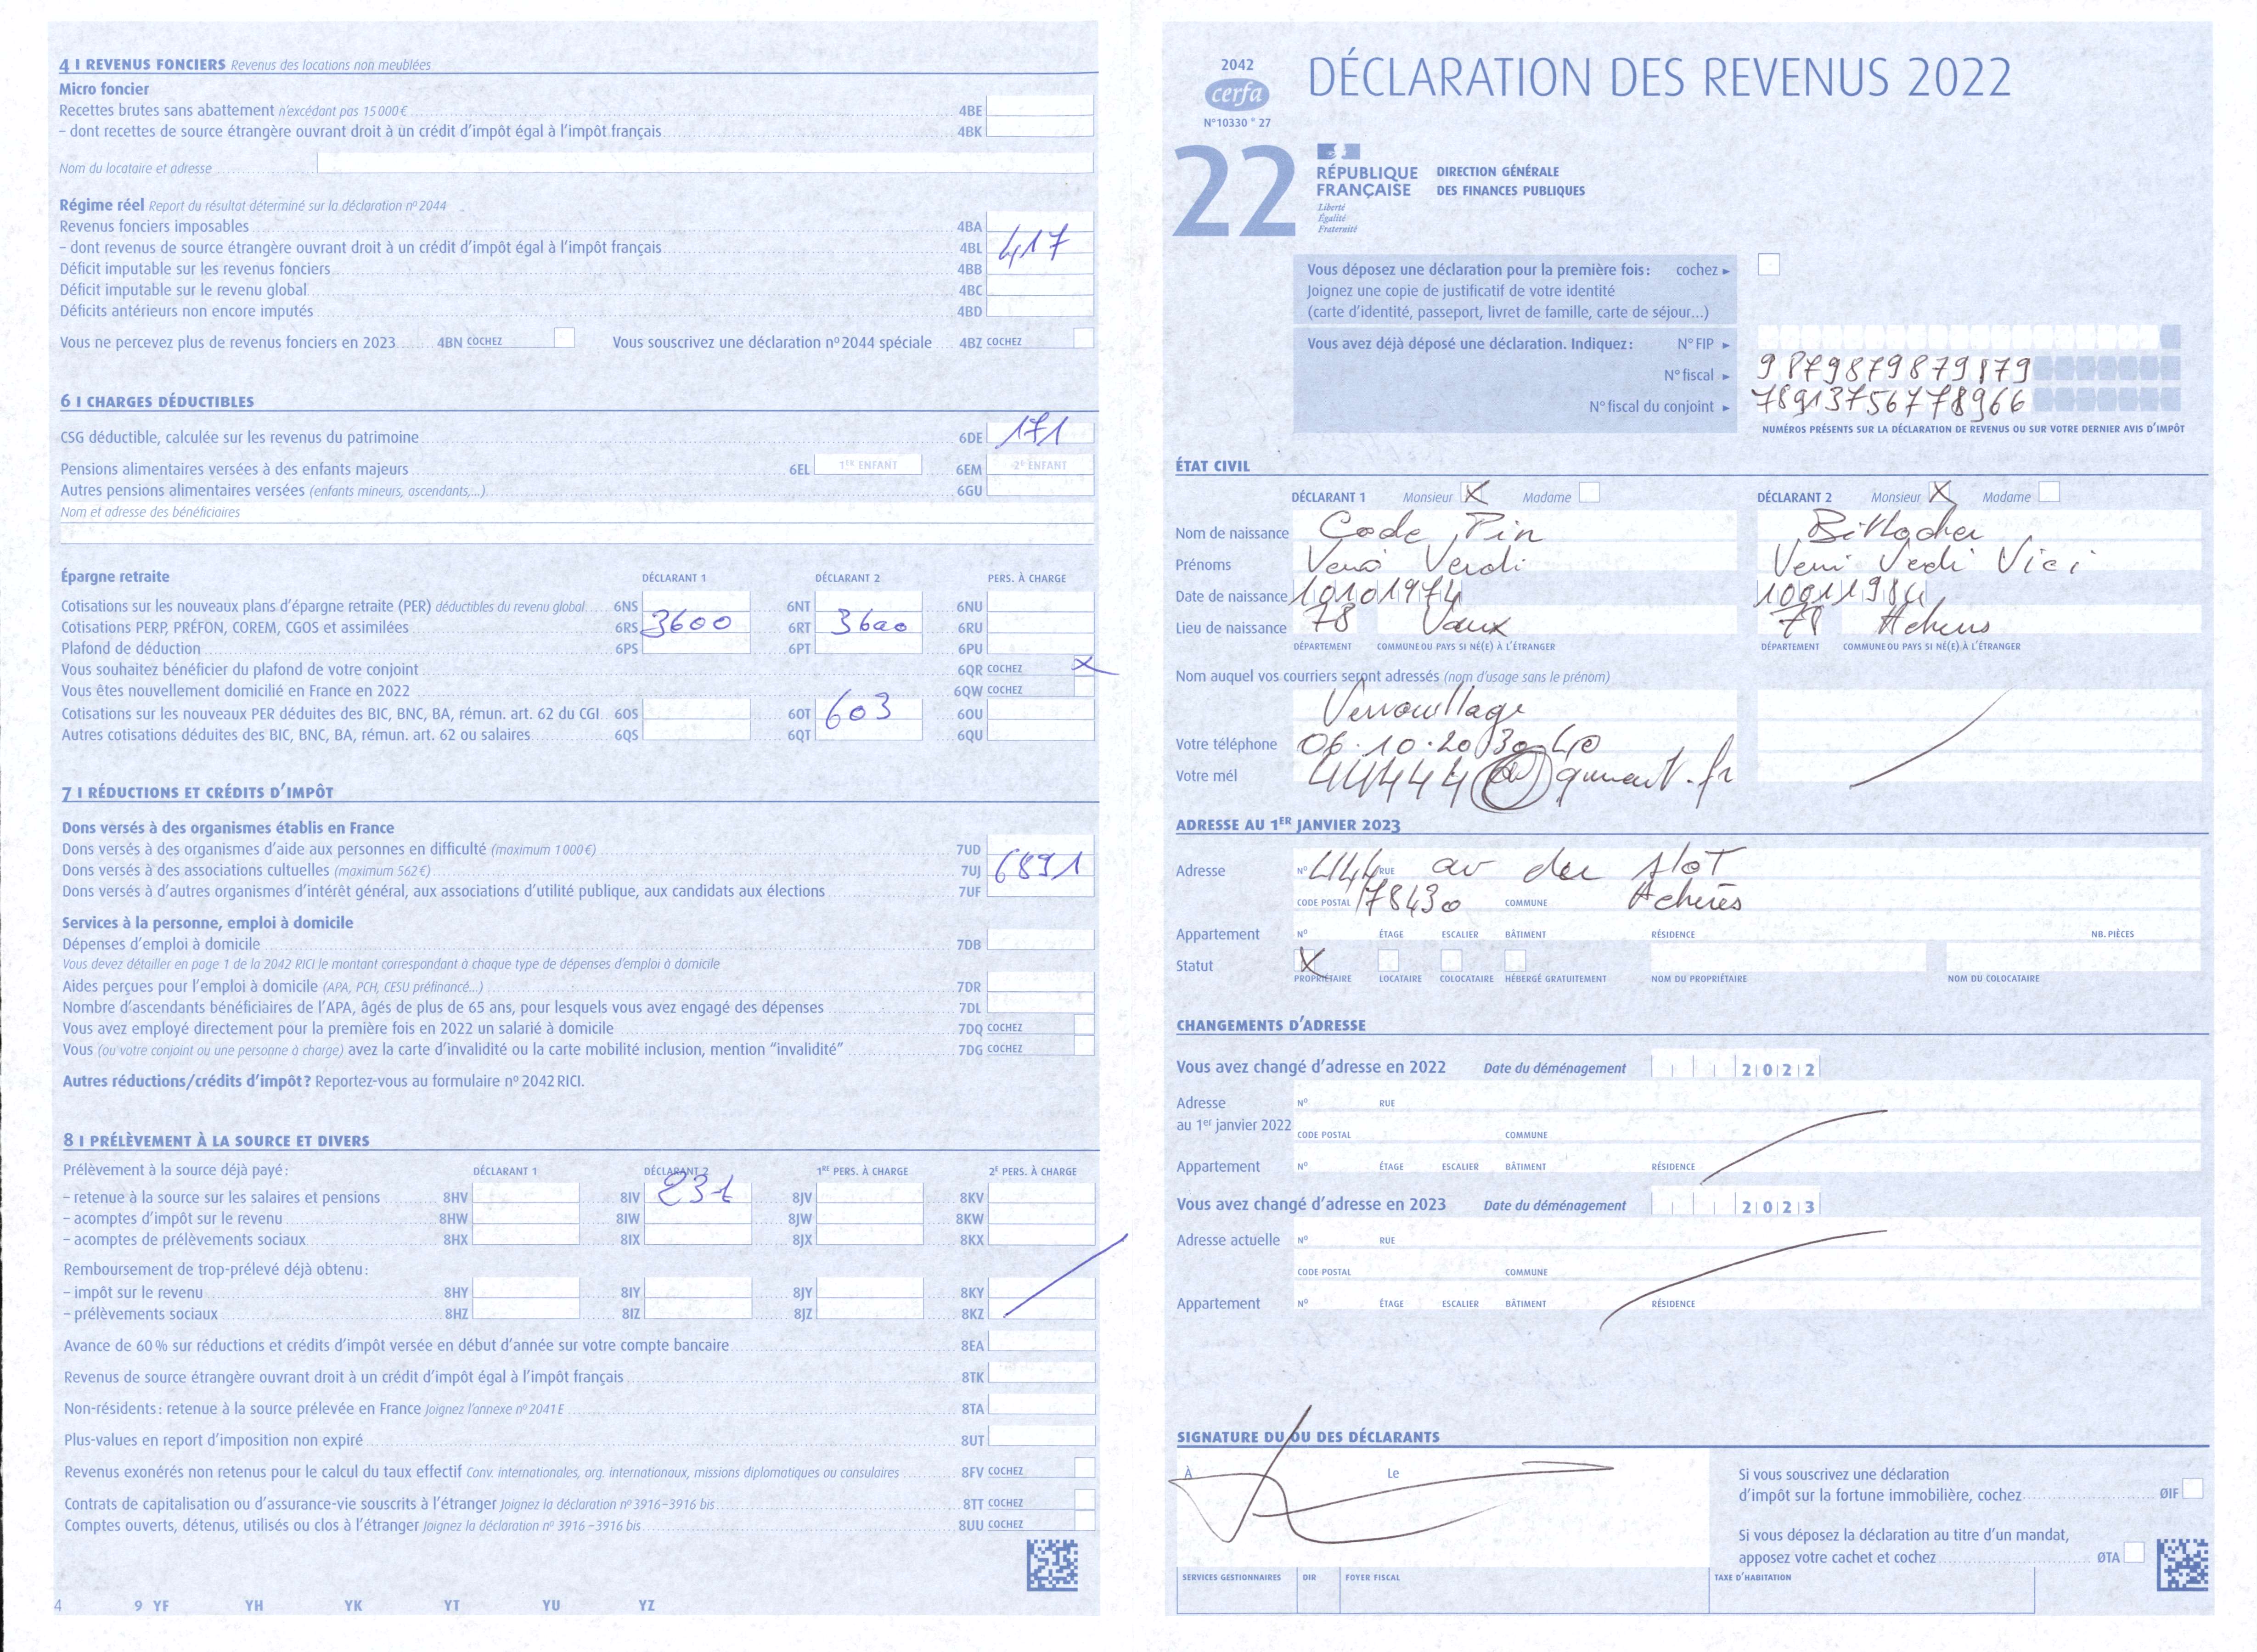 4 I REVENUS FONCIERS Revenus des locations non meublées
Micro foncier
Recettes brutes sans abattement n'excédant pas 15000€ 4BE
– dont recettes de source étrangère ouvrant droit à un crédit d'impôt égal à l'impôt français 4BK
Nom du locataire et adresse
Régime réel Report du résultat déterminé sur la déclaration nº 2044
Revenus fonciers imposables 4BA
– dont revenus de source étrangère ouvrant droit à un crédit d'impôt égal à l'impôt français 4BL 417
Déficit imputable sur les revenus fonciers 4BB
Déficit imputable sur le revenu global 4BC
Déficits antérieurs non encore imputés 4BD
Vous ne percevez plus de revenus fonciers en 2023 4BN COCHEZ Vous souscrivez une déclaration nº 2044 spéciale 4BZ COCHEZ
6 I CHARGES DÉDUCTIBLES
CSG déductible, calculée sur les revenus du patrimoine 6DE 171
Pensions alimentaires versées à des enfants majeurs 6EL 1ER ENFANT 6EM 2E ENFANT
Autres pensions alimentaires versées (enfants mineurs, ascendants,...) 6GU
Nom et adresse des bénéficiaires
Épargne retraite DÉCLARANT 1 DÉCLARANT 2 PERS. À CHARGE
Cotisations sur les nouveaux plans d'épargne retraite (PER) déductibles du revenu global 6NS 6NT 6NU
Cotisations PERP, PRÉFON, COREM, CGOS et assimilées 6RS 3600 6RT 3600 6RU
Plafond de déduction 6PS 6PT 6PU
Vous souhaitez bénéficier du plafond de votre conjoint 6QR COCHEZ X
Vous êtes nouvellement domicilié en France en 2022 6QW COCHEZ
Cotisations sur les nouveaux PER déduites des BIC, BNC, BA, rémun. art. 62 du CGI 6OS 6OT 603 6OU
Autres cotisations déduites des BIC, BNC, BA, rémun. art. 62 ou salaires 6QS 6QT 6QU
7 I RÉDUCTIONS ET CRÉDITS D'IMPÔT
Dons versés à des organismes établis en France
Dons versés à des organismes d'aide aux personnes en difficulté (maximum 1000€) 7UD
Dons versés à des associations cultuelles (maximum 562€) 7UJ 6891
Dons versés à d'autres organismes d'intérêt général, aux associations d'utilité publique, aux candidats aux élections 7UF
Services à la personne, emploi à domicile
Dépenses d'emploi à domicile 7DB
Vous devez détailler en page 1 de la 2042 RICI le montant correspondant à chaque type de dépenses d'emploi à domicile
Aides perçues pour l'emploi à domicile (APA, PCH, CESU préfinancé...) 7DR
Nombre d'ascendants bénéficiaires de l'APA, âgés de plus de 65 ans, pour lesquels vous avez engagé des dépenses 7DL
Vous avez employé directement pour la première fois en 2022 un salarié à domicile 7DQ COCHEZ
Vous (ou votre conjoint ou une personne à charge) avez la carte d'invalidité ou la carte mobilité inclusion, mention "invalidité" 7DG COCHEZ
Autres réductions/crédits d'impôt? Reportez-vous au formulaire nº 2042 RICI.
8 I PRÉLÈVEMENT À LA SOURCE ET DIVERS
Prélèvement à la source déjà payé: DÉCLARANT 1 DÉCLARANT 2 1RE PERS. À CHARGE 2E PERS. À CHARGE
– retenue à la source sur les salaires et pensions 8HV 8IV 8JV 8KV
– acomptes d'impôt sur le revenu 8HW 8IW 8JW 8KW
– acomptes de prélèvements sociaux 8HX 8IX 8JX 8KX
Remboursement de trop-prélevé déjà obtenu:
– impôt sur le revenu 8HY 8IY 8JY 8KY
– prélèvements sociaux 8HZ 8IZ 8JZ 8KZ
Avance de 60% sur réductions et crédits d'impôt versée en début d'année sur votre compte bancaire 8EA
Revenus de source étrangère ouvrant droit à un crédit d'impôt égal à l'impôt français 8TK
Non-résidents: retenue à la source prélevée en France Joignez l'annexe nº 2041 E 8TA
Plus-values en report d'imposition non expiré 8UT
Revenus exonérés non retenus pour le calcul du taux effectif Conv. internationales, org. internationaux, missions diplomatiques ou consulaires 8FV COCHEZ
Contrats de capitalisation ou d'assurance-vie souscrits à l'étranger Joignez la déclaration nº 3916–3916 bis 8TT COCHEZ
Comptes ouverts, détenus, utilisés ou clos à l'étranger Joignez la déclaration nº 3916–3916 bis 8UU COCHEZ
4 9 YF YH YK YT YU YZ
2042
cerfa
N°10330 * 27
DÉCLARATION DES REVENUS 2022
22
RÉPUBLIQUE FRANÇAISE
Liberté
Égalité
Fraternité
DIRECTION GÉNÉRALE
DES FINANCES PUBLIQUES
Vous déposez une déclaration pour la première fois: cochez ►
Joignez une copie de justificatif de votre identité
(carte d'identité, passeport, livret de famille, carte de séjour...)
Vous avez déjà déposé une déclaration. Indiquez: N° FIP ►
N° fiscal ► 9879879879879
N° fiscal du conjoint ► 78913756778966
NUMÉROS PRÉSENTS SUR LA DÉCLARATION DE REVENUS OU SUR VOTRE DERNIER AVIS D'IMPÔT
ÉTAT CIVIL
DÉCLARANT 1 Monsieur X Madame DÉCLARANT 2 Monsieur X Madame
Nom de naissance Code Pin
Prénoms Verdi Veni Vici
Date de naissance 10101974
Lieu de naissance 78 Vaux 78
DÉPARTEMENT COMMUNE OU PAYS SI NÉ(E) À L'ÉTRANGER DÉPARTEMENT COMMUNE OU PAYS SI NÉ(E) À L'ÉTRANGER
Nom auquel vos courriers seront adressés (nom d'usage sans le prénom)
Verrouillage
Votre téléphone 06.10.20.30.40
Votre mél
ADRESSE AU 1ER JANVIER 2023
Adresse N° 444 RUE av
CODE POSTAL 78430 COMMUNE Achères
Appartement N° ÉTAGE ESCALIER BÂTIMENT RÉSIDENCE NB. PIÈCES
Statut X
PROPRIÉTAIRE LOCATAIRE COLOCATAIRE HÉBERGÉ GRATUITEMENT NOM DU PROPRIÉTAIRE NOM DU COLOCATAIRE
CHANGEMENTS D'ADRESSE
Vous avez changé d'adresse en 2022 Date du déménagement 2022
Adresse N° RUE
au 1er janvier 2022 CODE POSTAL COMMUNE
Appartement N° ÉTAGE ESCALIER BÂTIMENT RÉSIDENCE
Vous avez changé d'adresse en 2023 Date du déménagement 2023
Adresse actuelle N° RUE
CODE POSTAL COMMUNE
Appartement N° ÉTAGE ESCALIER BÂTIMENT RÉSIDENCE
SIGNATURE DU OU DES DÉCLARANTS
À Le
Si vous souscrivez une déclaration
d'impôt sur la fortune immobilière, cochez ØIF
Si vous déposez la déclaration au titre d'un mandat,
apposez votre cachet et cochez ØTA
SERVICES GESTIONNAIRES DIR FOYER FISCAL TAXE D'HABITATION